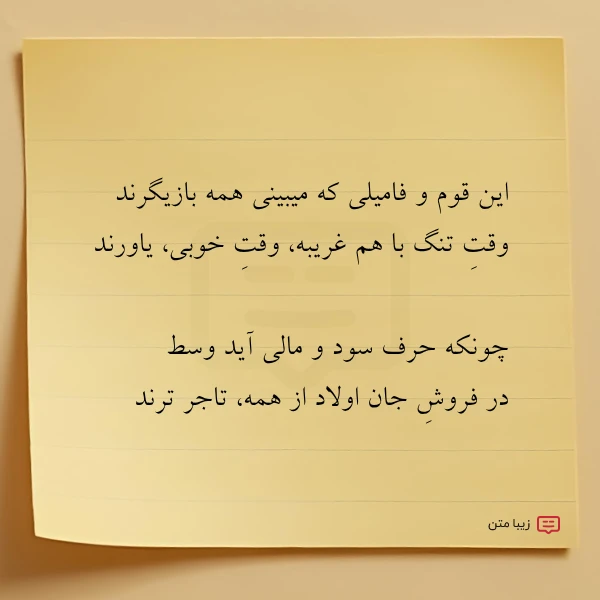 این قوم و فامیلی که میبینی همه بازیگرند
وقتِ تنگ با هم غریبه، وقتِ خوبی، یاورند
چونکه حرف سود و مالی آید وسط
در فروشِ جان اولاد از همه، تاجر ترند
زیبا متن